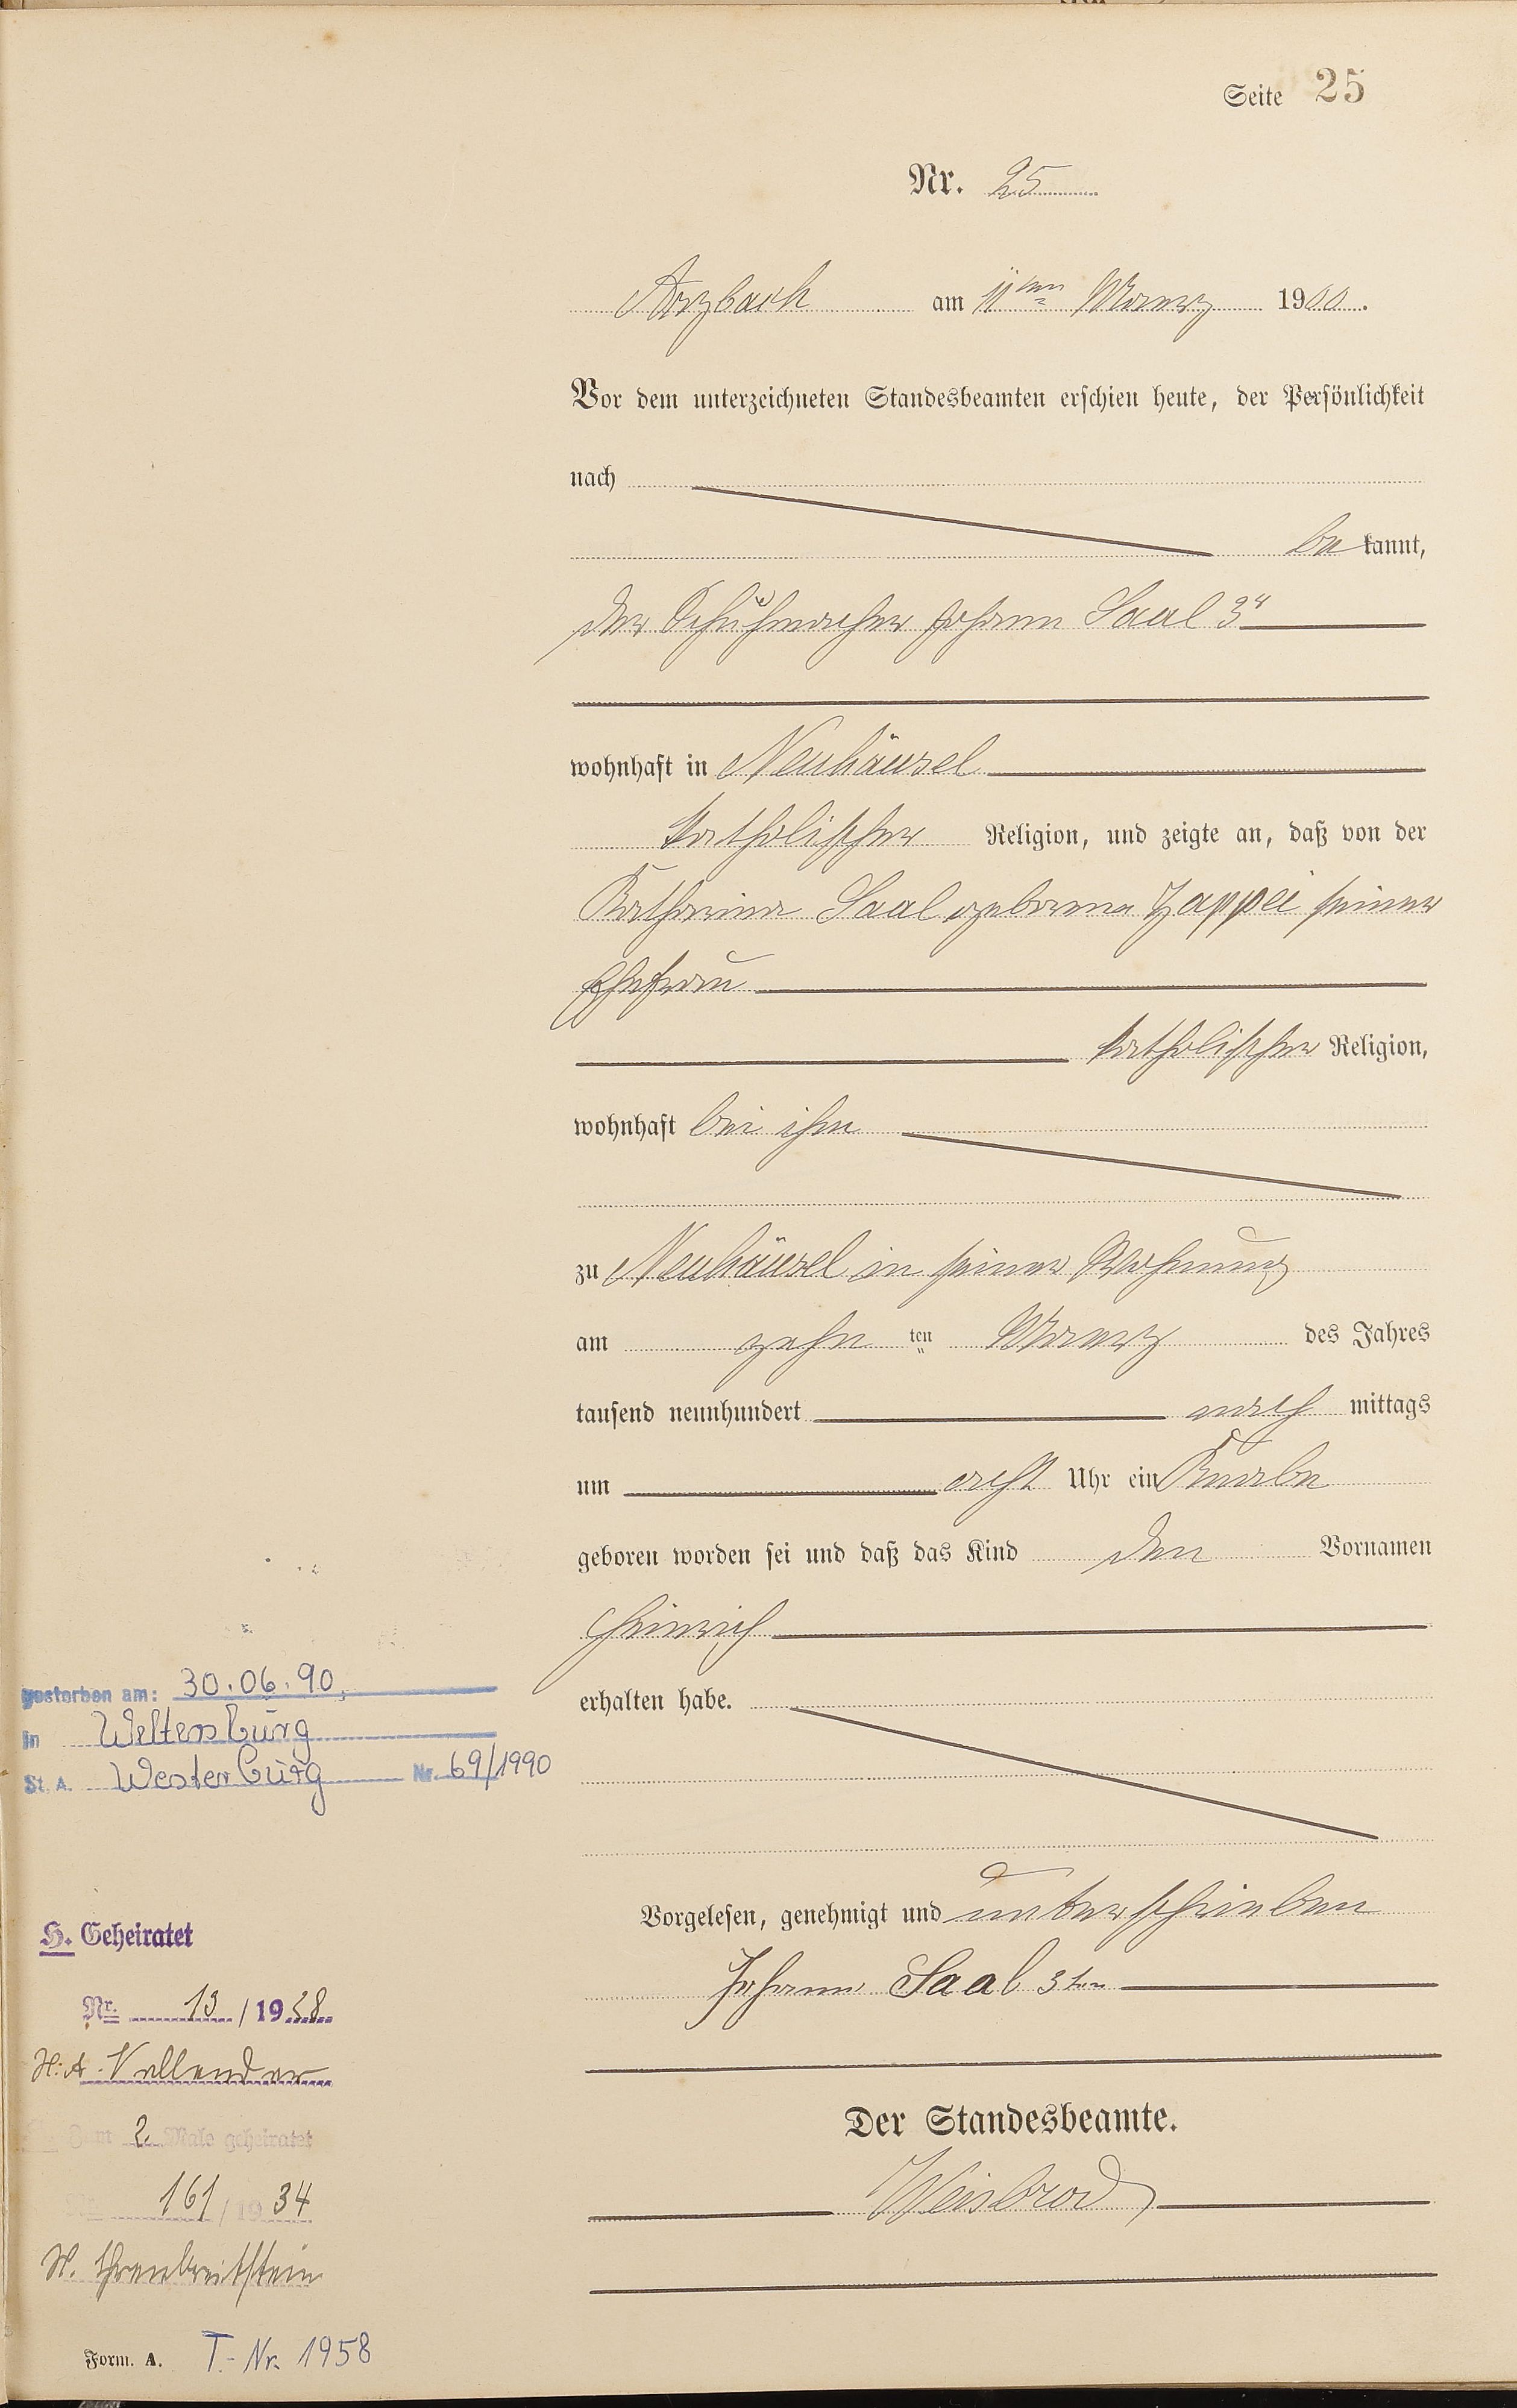 Seite 25
Nr. 25
Arzbach am 11ten Maerz 1900.
Vor dem unterzeichneten Standesbeamten erschien heute, der Persönlichkeit
nach
be kannt,
der Schuhmacher Johann Saal 3r
wohnhaft in Neuhäusel
katholischer Religion, und zeigte an, daß von der
Katharina Saal geborene Zappei seiner
Ehefrau
katholischer Religion,
wohnhaft bei ihm
zu Neuhäusel in seiner Wohnung
am zehn ten Maerz des Jahres
tausend neunhundert nach mittags
um acht Uhr ein Knabe
geboren worden sei und daß das Kind den Vornamen
Heinrich
erhalten habe.
gestorben am: 30.06.90.
in Weltersburg
St. A. Westerburg Nr. 69/1990
Vorgelesen, genehmigt und unterschrieben
Johann Saal 3ter
H. Geheiratet
Nr. 13 / 1928
St. A. Vallendar
Zum 2. Male geheiratet
Nr. 161 / 19 34
St. Ehrenbreitstein
Der Standesbeamte.
Weisbrod
Form. A. T.- Nr. 1958